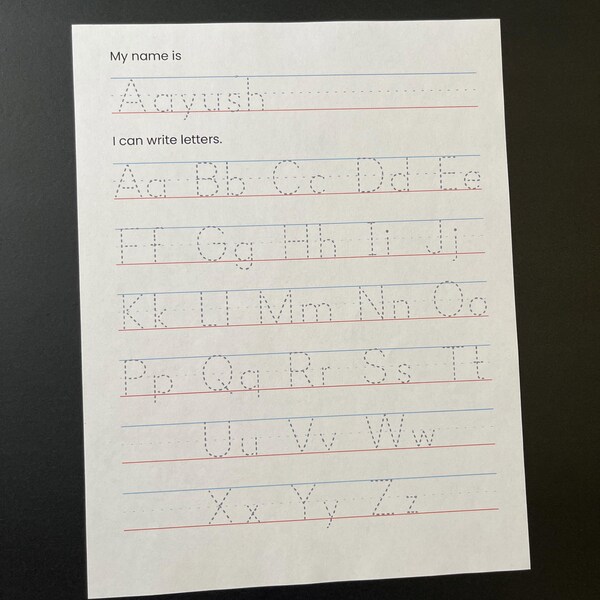 My name is
Aayush
I can write letters.
Aa Bb Cc Dd Ee
Ff Gg Hh Ii Jj
Kk Ll Mm Nn Oo
Pp Qq Rr Ss Tt
Uu Vv Ww
Xx Yy Zz